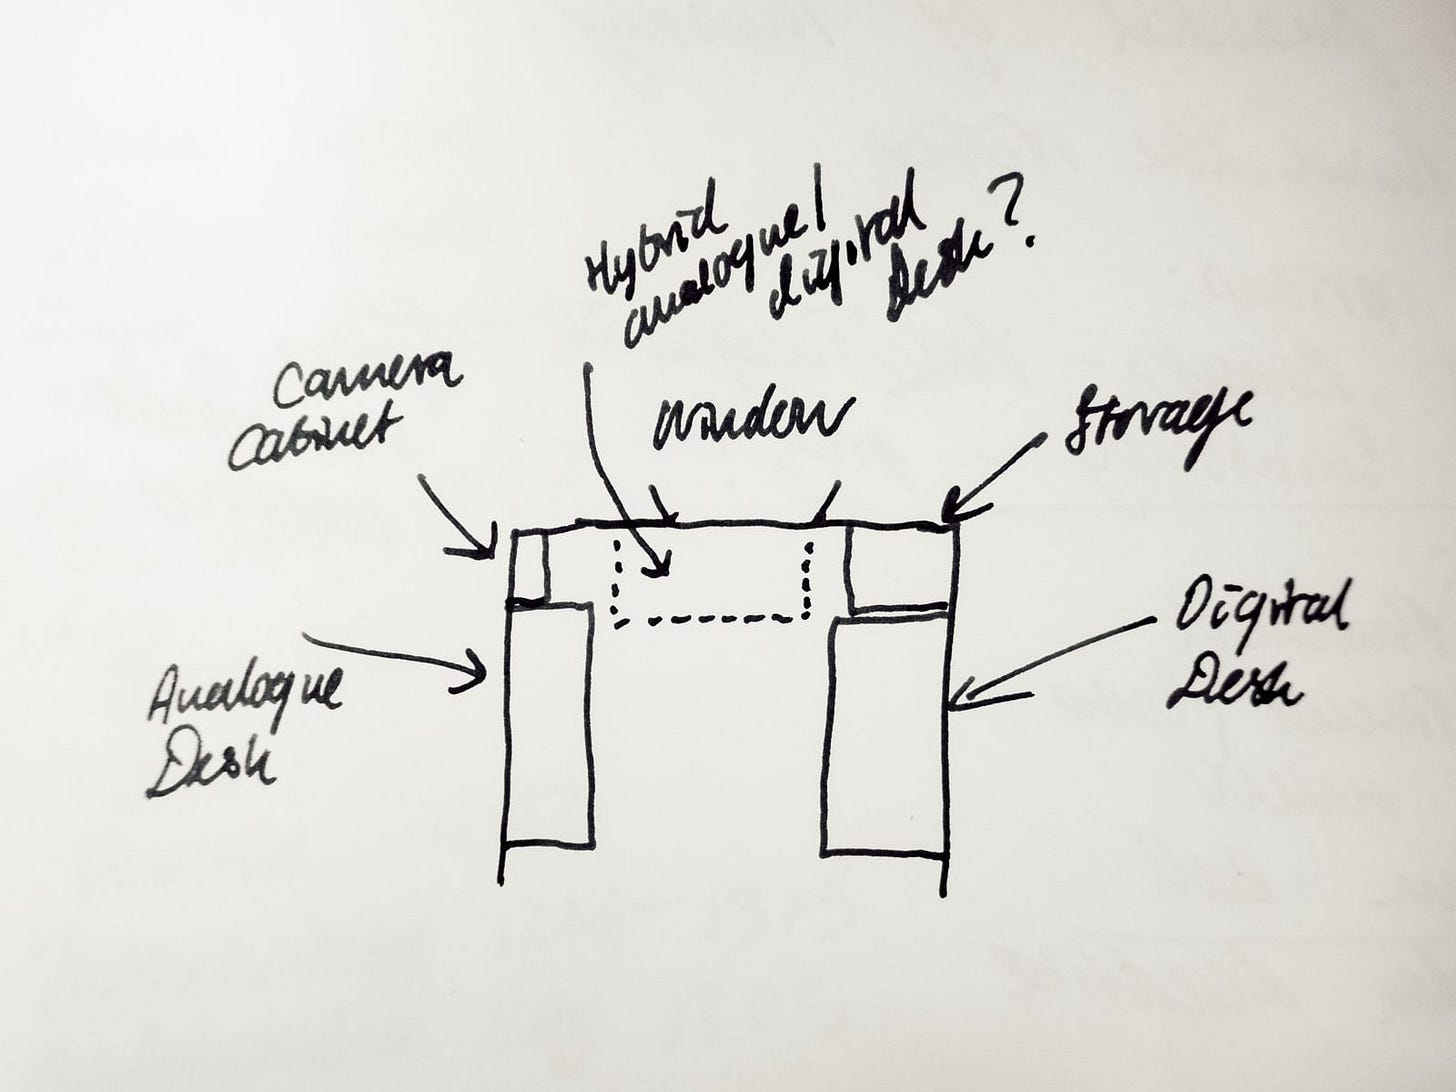 Hybrid
analogue/
digital
Desk?
Camera
Cabinet
Window
Storage
Analogue
Desk
Digital
Desk